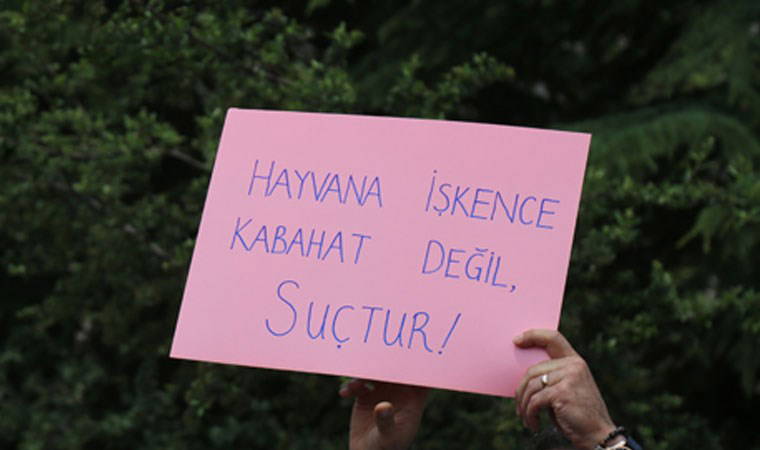 HAYVANA İŞKENCE
KABAHAT DEĞİL,
SUÇTUR!